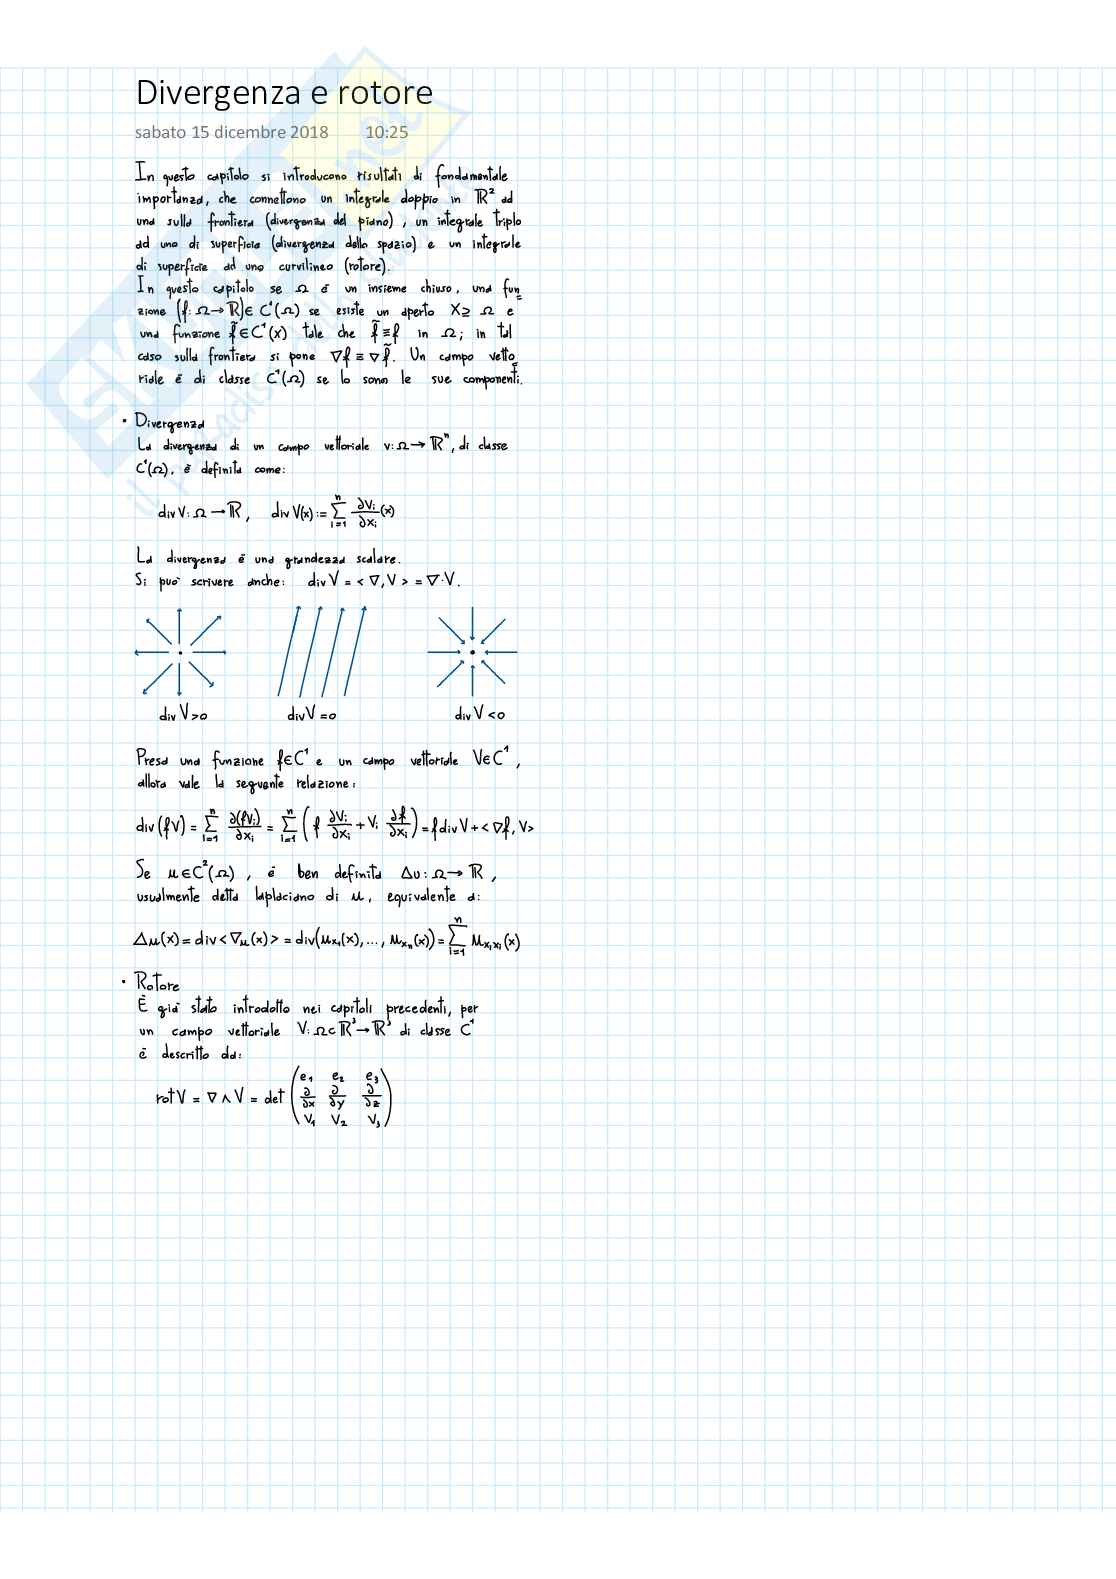 Divergenza e rotore
sabato 15 dicembre 2018 10:25
In questo capitolo si introducono risultati di fondamentale
importanza, che connettono un integrale doppio in ℝ² ad
una sulla frontiera (divergenza del piano), un integrale triplo
ad uno di superficie (divergenza dello spazio) e un integrale
di superficie ad uno curvilineo (rotore).
In questo capitolo se Ω è un insieme chiuso, una fun
zione (f: Ω→ℝ)∈ C¹(Ω) se esiste un aperto X⊇ Ω e
una funzione f̃∈C¹(x) tale che f̃≡f in Ω; in tal
caso sulla frontiera si pone ∇f ≡ ∇f̃. Un campo vetto
riale è di classe C¹(Ω) se lo sono le sue componenti.
• Divergenza
La divergenza di un campo vettoriale v: Ω→ ℝⁿ, di classe
C¹(Ω), è definita come:
div V: Ω → ℝ, div V(x) := ∑ᵢ₌₁ⁿ ∂Vᵢ/∂xᵢ (x)
La divergenza è una grandezza scalare.
Si può scrivere anche: div V = < ∇, V > = ∇·V.
div V>0 div V=0 div V<0
Presa una funzione f∈C¹ e un campo vettoriale V∈C¹,
allora vale la seguente relazione:
div(fV) = ∑ᵢ₌₁ⁿ ∂(fVᵢ)/∂xᵢ = ∑ᵢ₌₁ⁿ ( f ∂Vᵢ/∂xᵢ + Vᵢ ∂f/∂xᵢ ) = f div V + < ∇f, V>
Se u∈C²(Ω), è ben definita Δu: Ω→ ℝ,
usualmente detta laplaciano di u, equivalente a:
Δu(x) = div<∇u(x)> = div(u_x₁(x), ..., u_xₙ(x)) = ∑ᵢ₌₁ⁿ u_xᵢxᵢ(x)
• Rotore
È già stato introdotto nei capitoli precedenti, per
un campo vettoriale V: Ω⊂ℝ³→ℝ³ di classe C¹
è descritto da:
rot V = ∇ ∧ V = det ( e₁ e₂ e₃
∂/∂x ∂/∂y ∂/∂z
V₁ V₂ V₃ )